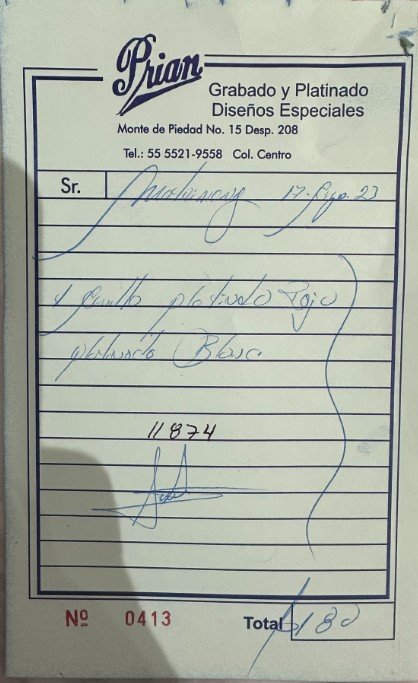 Prian
Grabado y Platinado
Diseños Especiales
Monte de Piedad No. 15 Desp. 208
Tel.: 55 5521-9558 Col. Centro
Sr. 17 23
1 Anillo platinado Rojo
platinado Blanco
11874
Nº 0413
Total $180